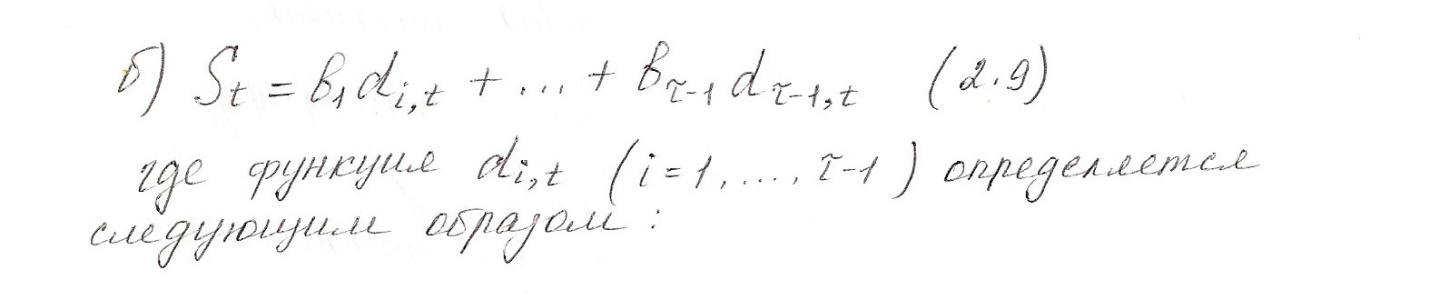 б) S_t = b_1 d_{i,t} + ... + b_{τ-1} d_{τ-1,t} (2.9)
где функция d_{i,t} (i=1, ...., τ-1) определяется
следующим образом: